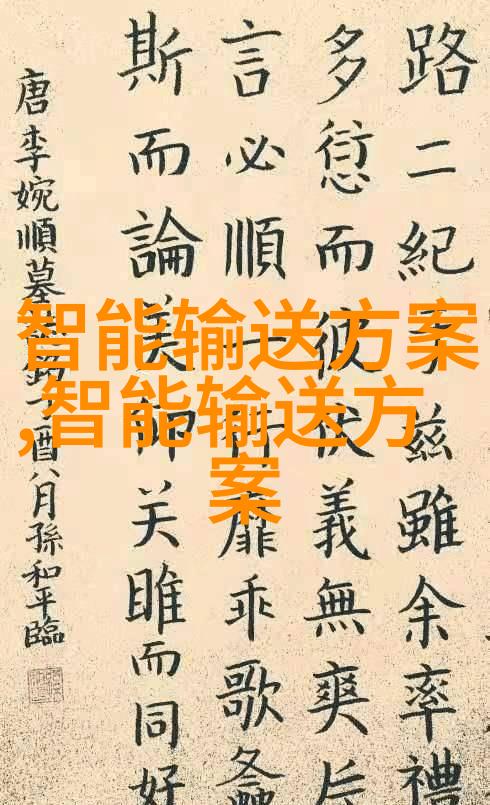 智能输送方案
,智能输送方
案
路二紀于兹雖余率禮
多愆而彼伏義無爽
言必順一行靡乖歌
斯而論美師关睢而同好
唐李婉順墓酉八月孫和平臨